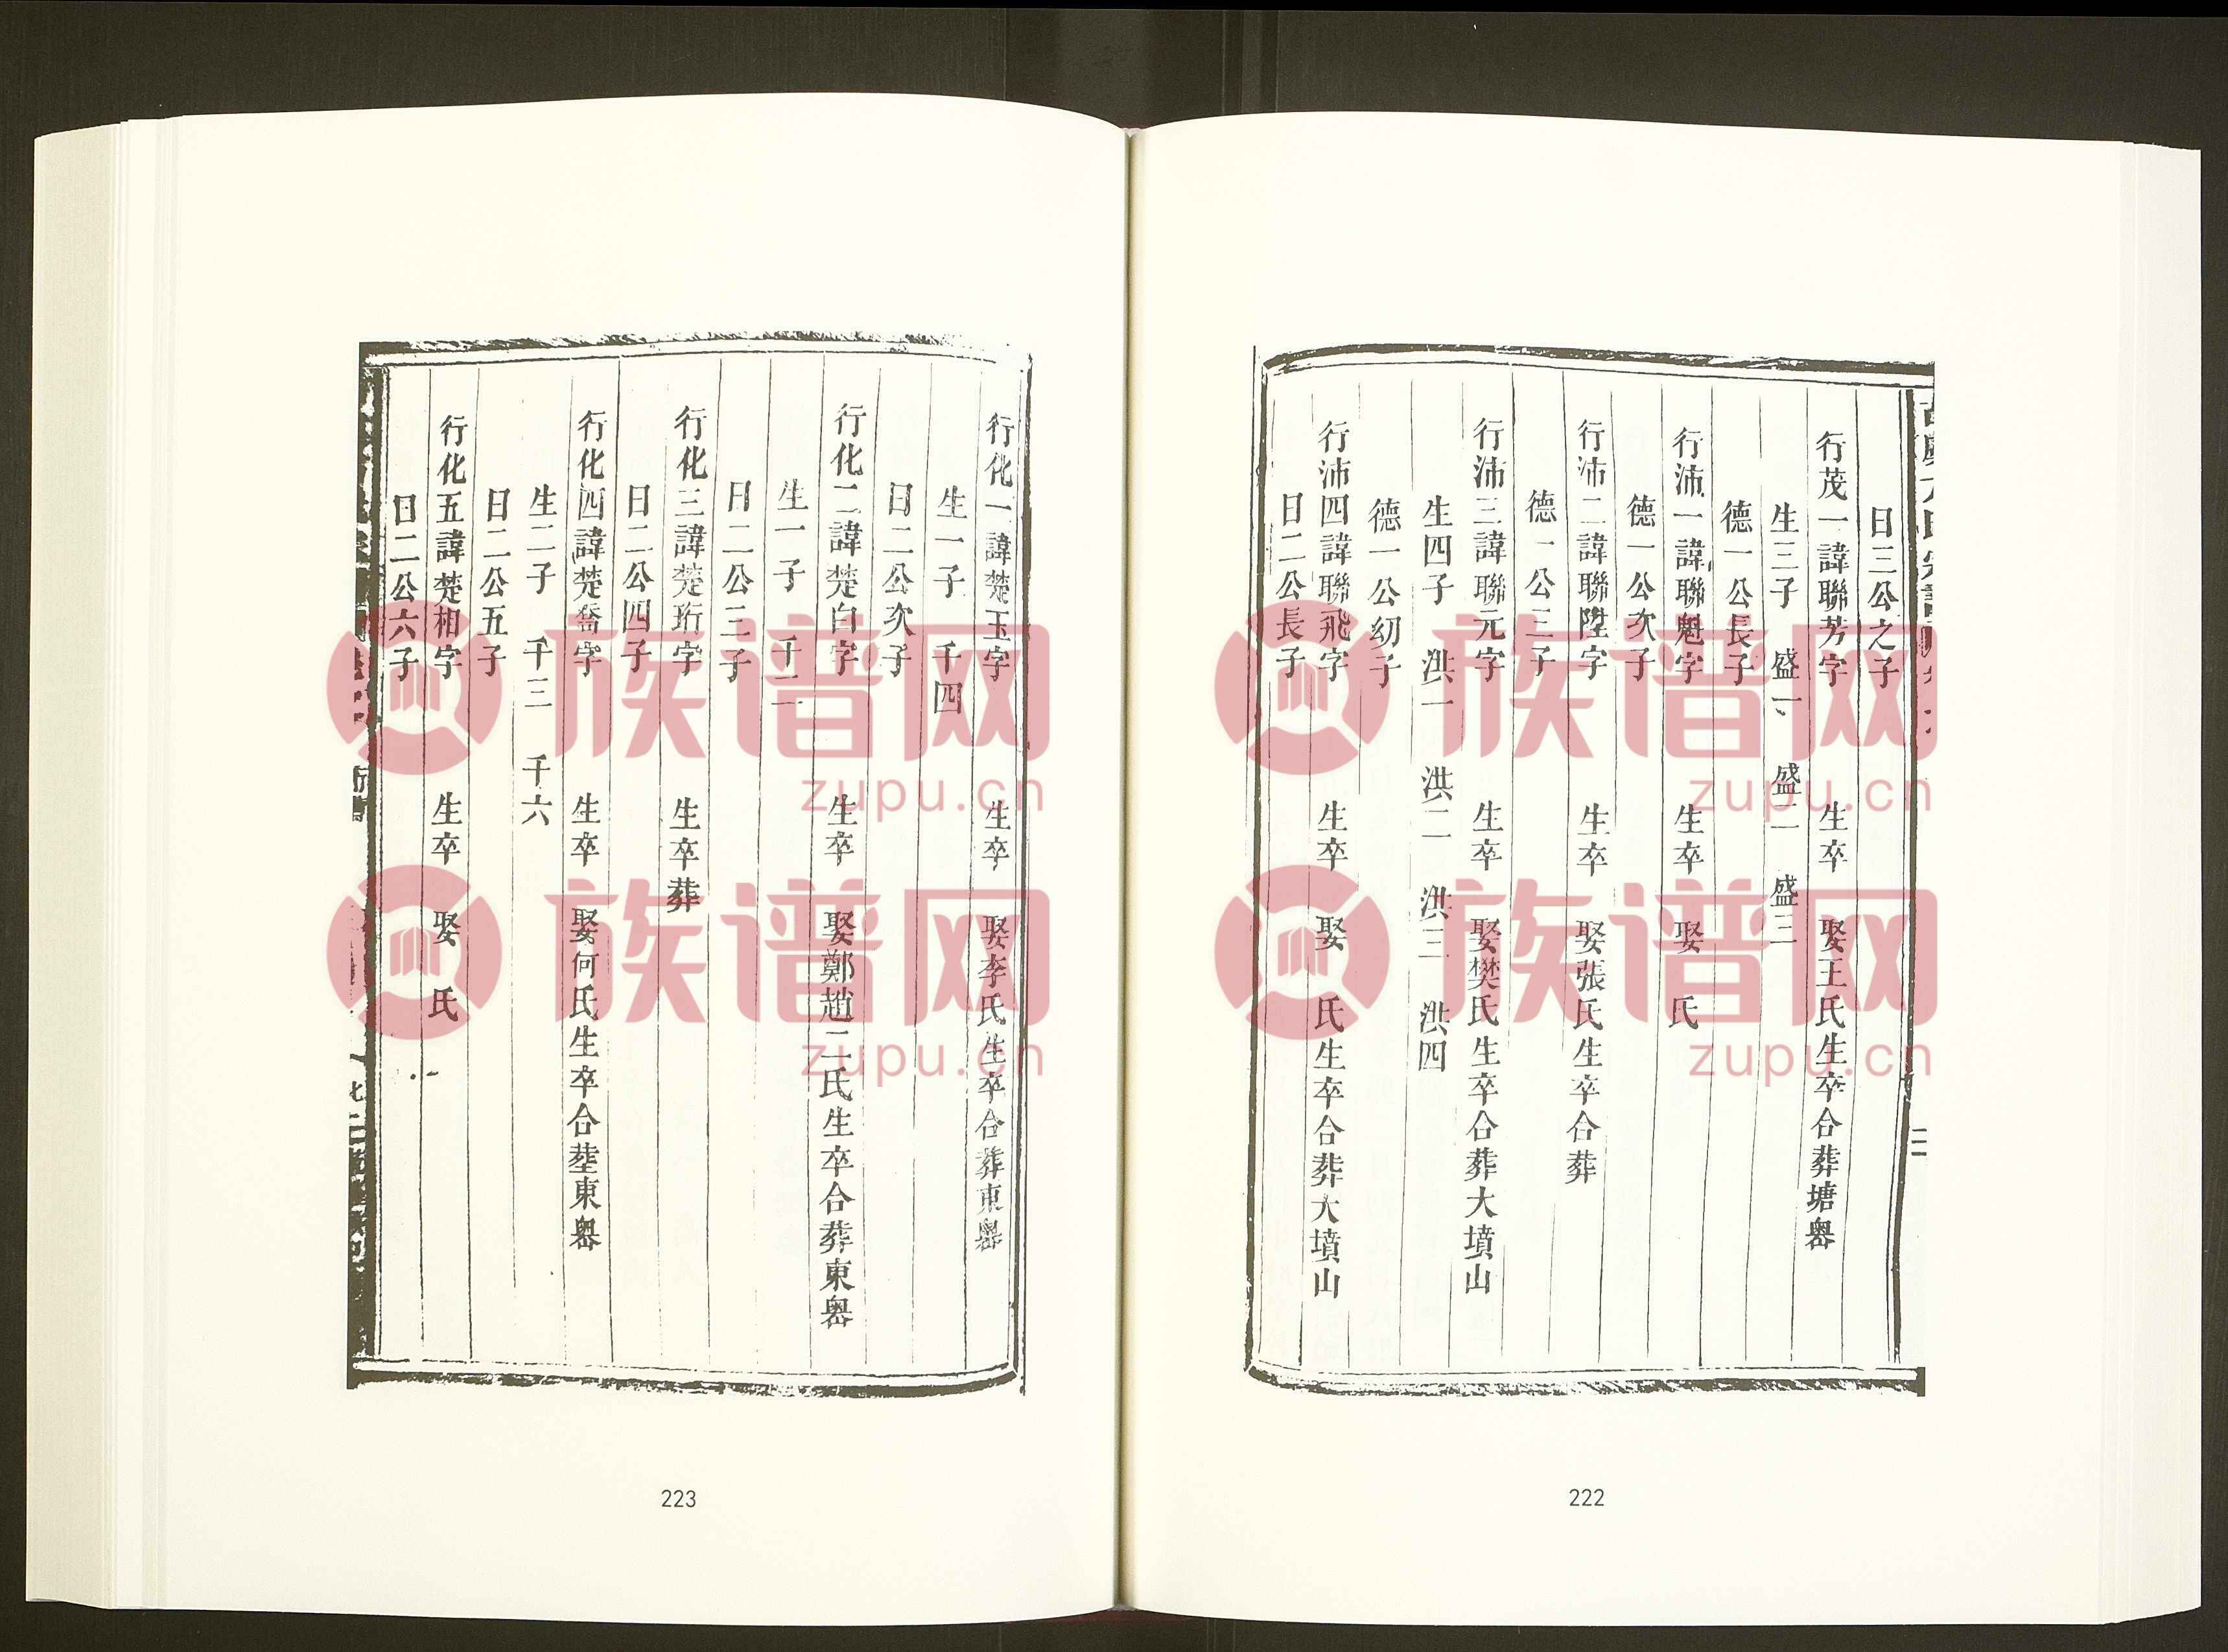 日三公之子
行茂一諱聯芳字 生卒 娶王氏生卒合葬塘嶴
生三子 盛一 盛二 盛三
德一公長子
行沛一諱聯魁字 生卒 娶 氏
德一公次子
行沛二諱聯陞字 生卒 娶張氏生卒合葬
德一公三子
行沛三諱聯元字 生卒 娶樊氏生卒合葬大墳山
生四子 洪一 洪二 洪三 洪四
德一公幼子
行沛四諱聯飛字 生卒 娶 氏生卒合葬大墳山
日二公長子
222
行化一諱楚玉字 生卒 娶李氏生卒合葬東嶴
生一子 千四
日二公次子
行化二諱楚白字 生卒 娶鄭趙二氏生卒合葬東嶴
生一子 千二
日二公三子
行化三諱楚珩字 生卒葬
日二公四子
行化四諱楚喬字 生卒 娶何氏生卒合塟東嶴
生二子 千三 千六
日二公五子
行化五諱楚相字 生卒 娶 氏
日二公六子
223
族谱网
zupu.cn
族谱网
zupu.cn
族谱网
zupu.cn
族谱网
zupu.cn